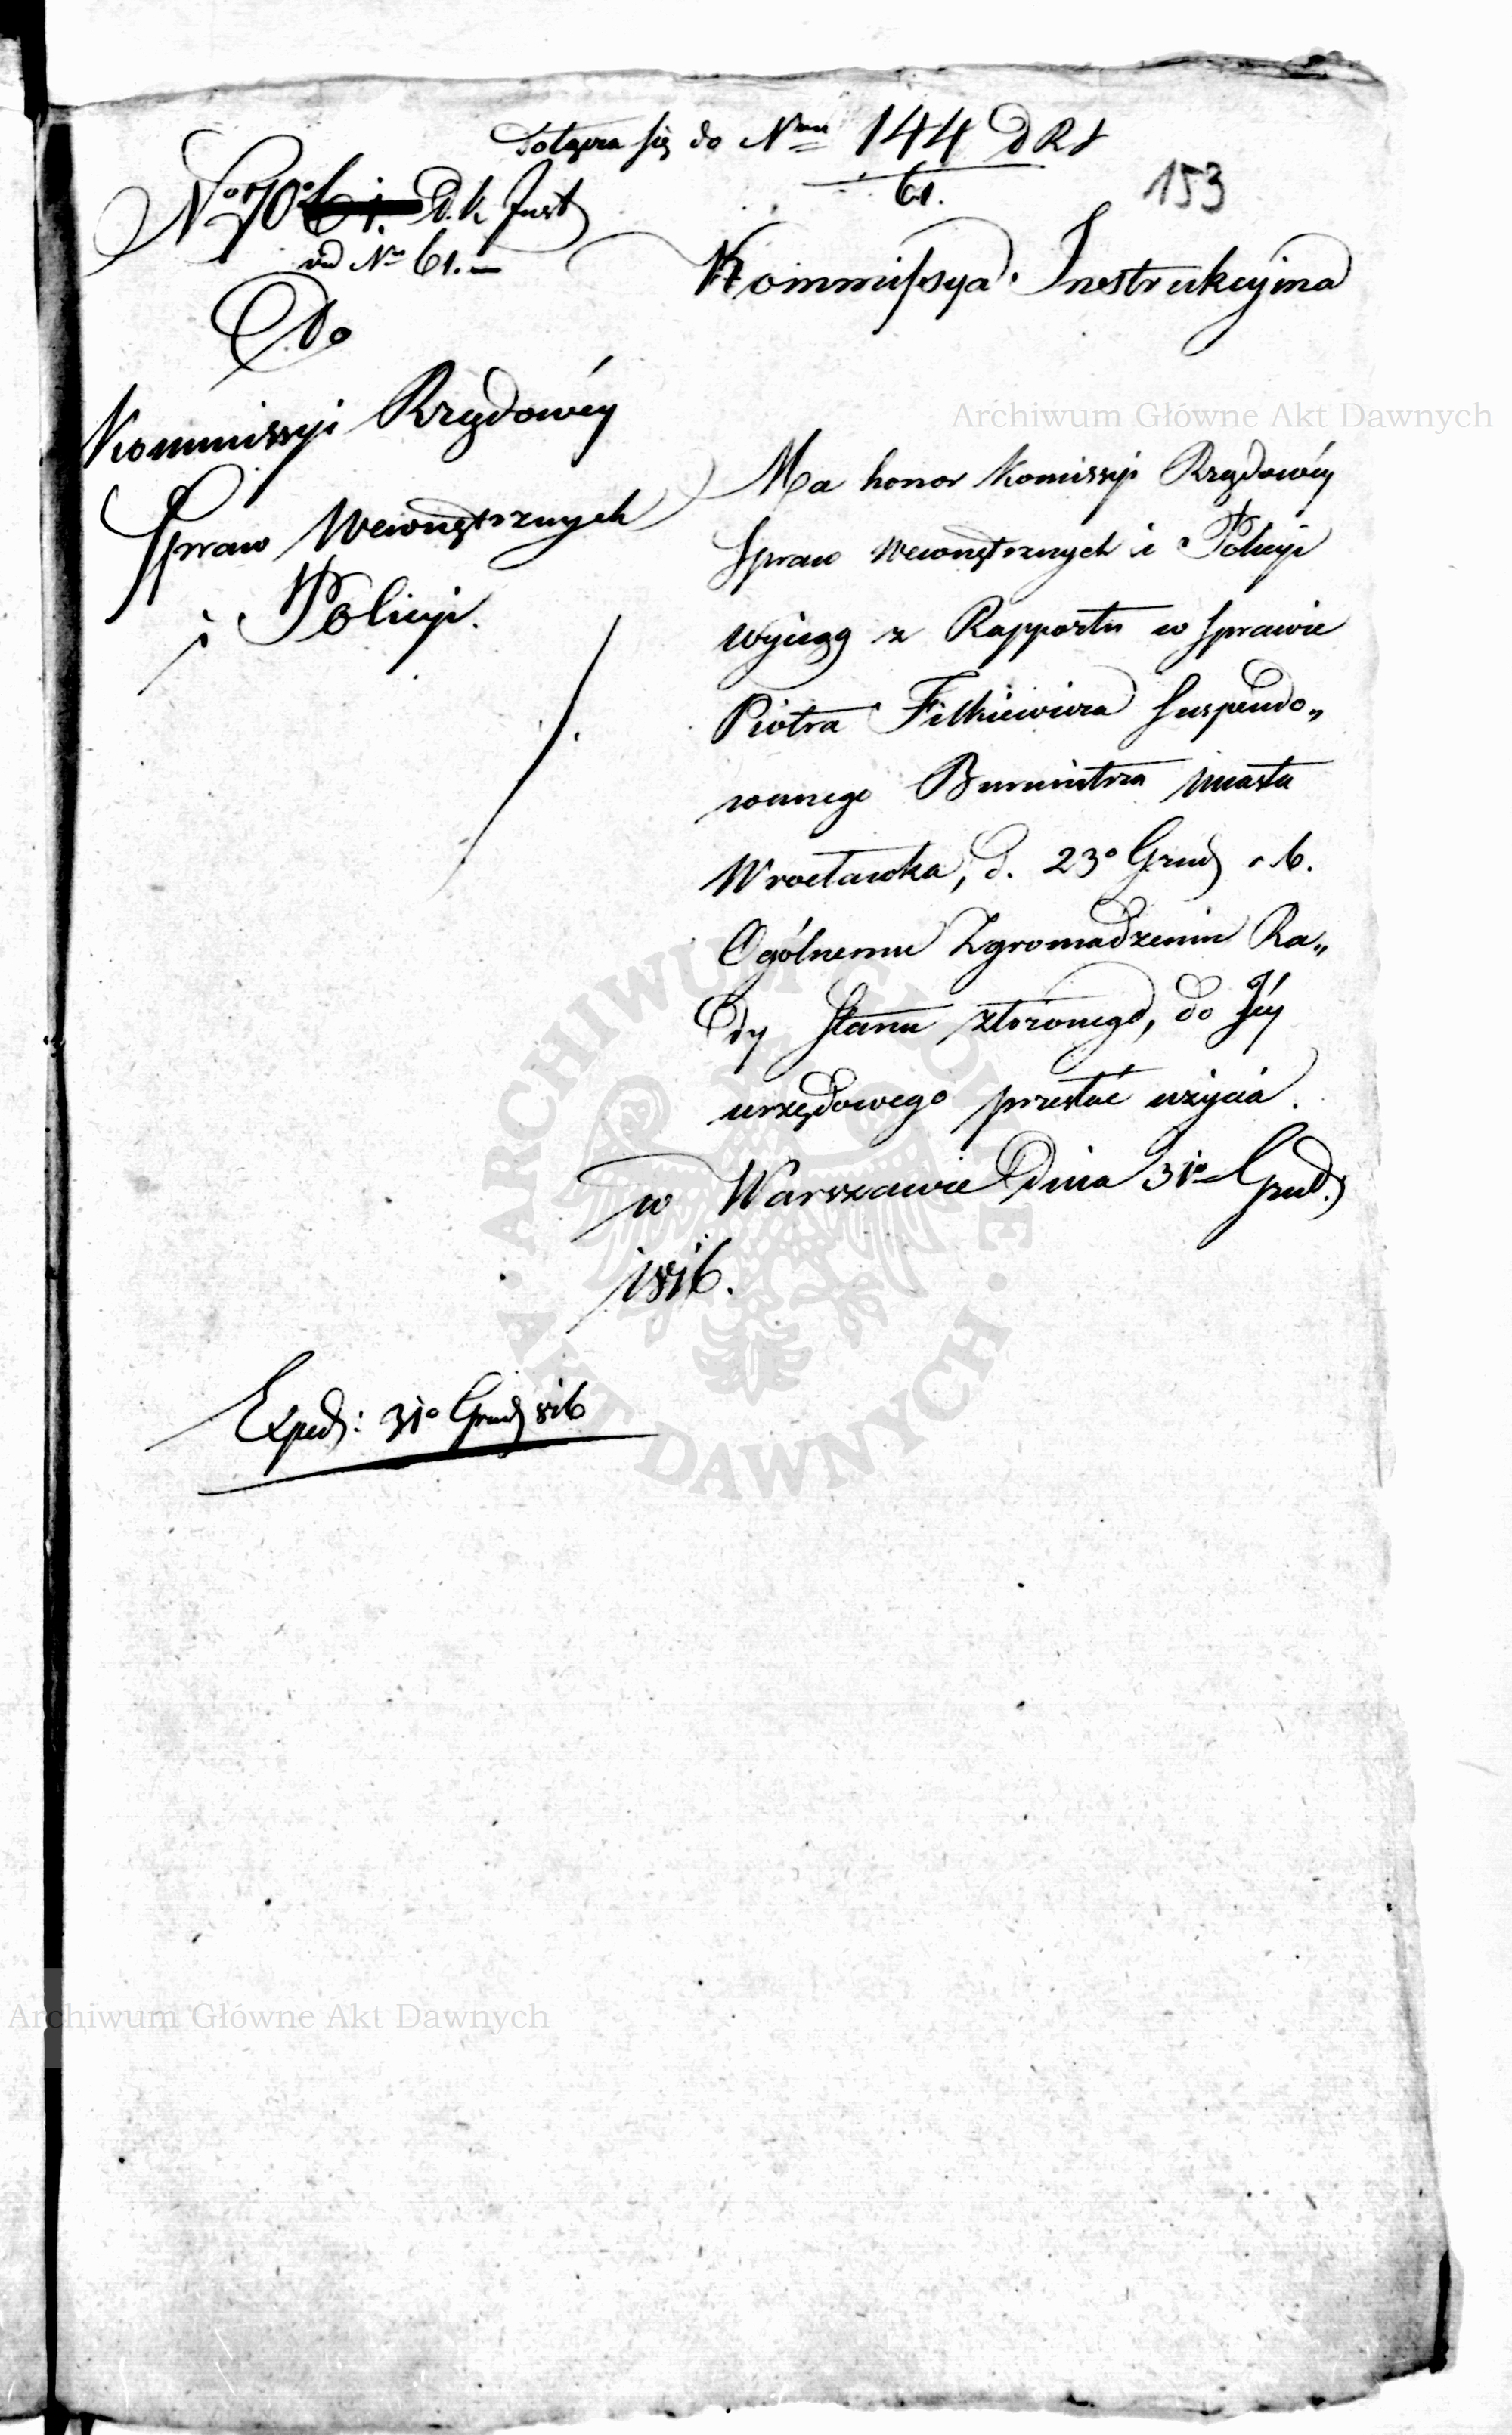 Dołącza się do Nru 144 D R S
61.
153
No 70 D. K. Inst
ad No 61.—
Do
Kommissyi Rządowéy
Spraw Wewnętrznych
i Policyi.
Kommissya Instrukcyina
Ma honor Komissyi Rządowéy
Spraw Wewnętrznych i Policyi
wyciąg z Rapportu w sprawie
Piotra Filkiewicza suspendo„
wanego Burmistrza Miasta
Wrocławka, d. 23o Grud r. b.
Ogólnemu Zgromadzeniu Ra„
dy Stanu złożonego, do Jéy
urzędowego przesłać użycia.
w Warszawie Dnia 31o Grud.
1816.
Exped: 31o Grud 816
Archiwum Główne Akt Dawnych
ARCHIWUM GŁÓWNE · AKT DAWNYCH ·
Archiwum Główne Akt Dawnych